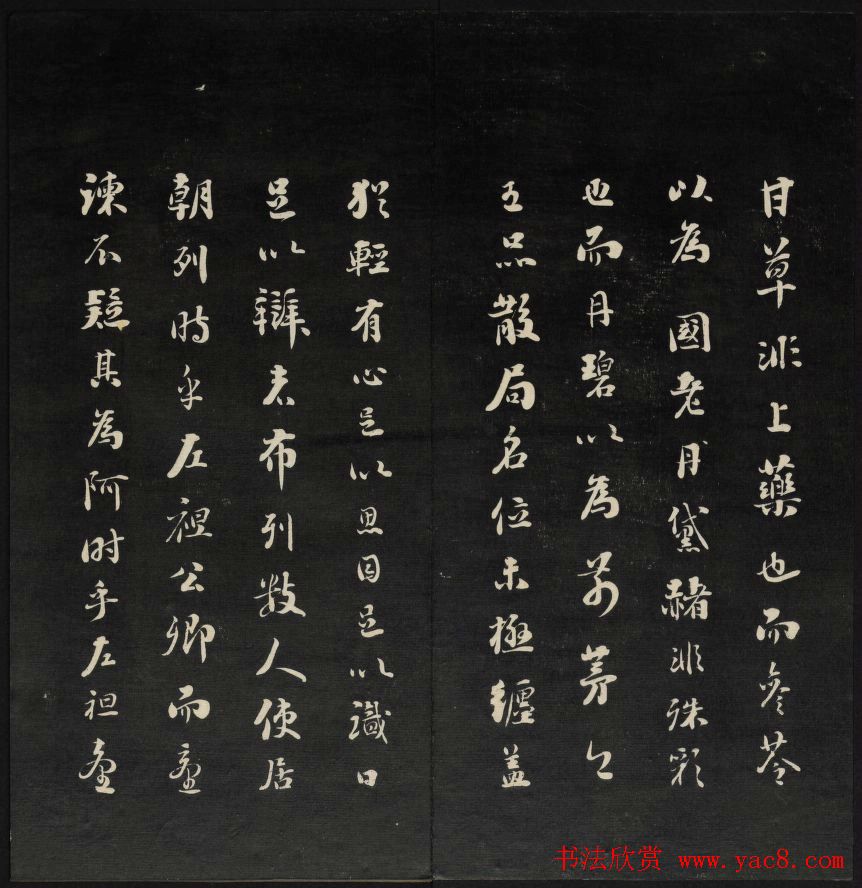 甘草非上藥也而參苓
以為國老丹黛赭非殊彩
也而丹碧以為前茅今
五品散局名位未極纏蓋
猶輕有心足以思目足以識口
足以辯者布列數人使居
朝列時乎左祖公卿而臺
諫不疑其為阿時乎左袒臺
书法欣赏 www.yac8.com